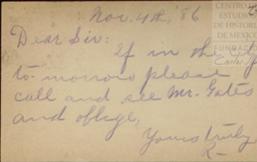 Nov. 4th, '86
Dear Sir:
If in the city
to-morrow please
call and see Mr. Gates
and oblige,
Yours truly
CENTRO
ESTUDI
DE HISTOR
DE MEXICO
FUNDAC
Carlos